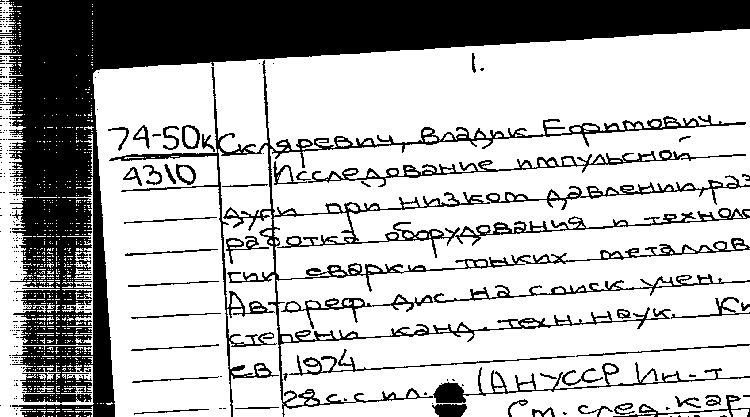 1.
74-50к Скляревич, Владик Ефимович.
4310 Исследование импульсной
дуги при низком давлении, раз
работка оборудования и техноло
гии сварки тонких металлов
Автореф. дис. на соиск. учен.
степени канд. техн. наук. Ки
ев, 1974.
28 с. с ил. (АН УССР. Ин-т
См. след. кар-